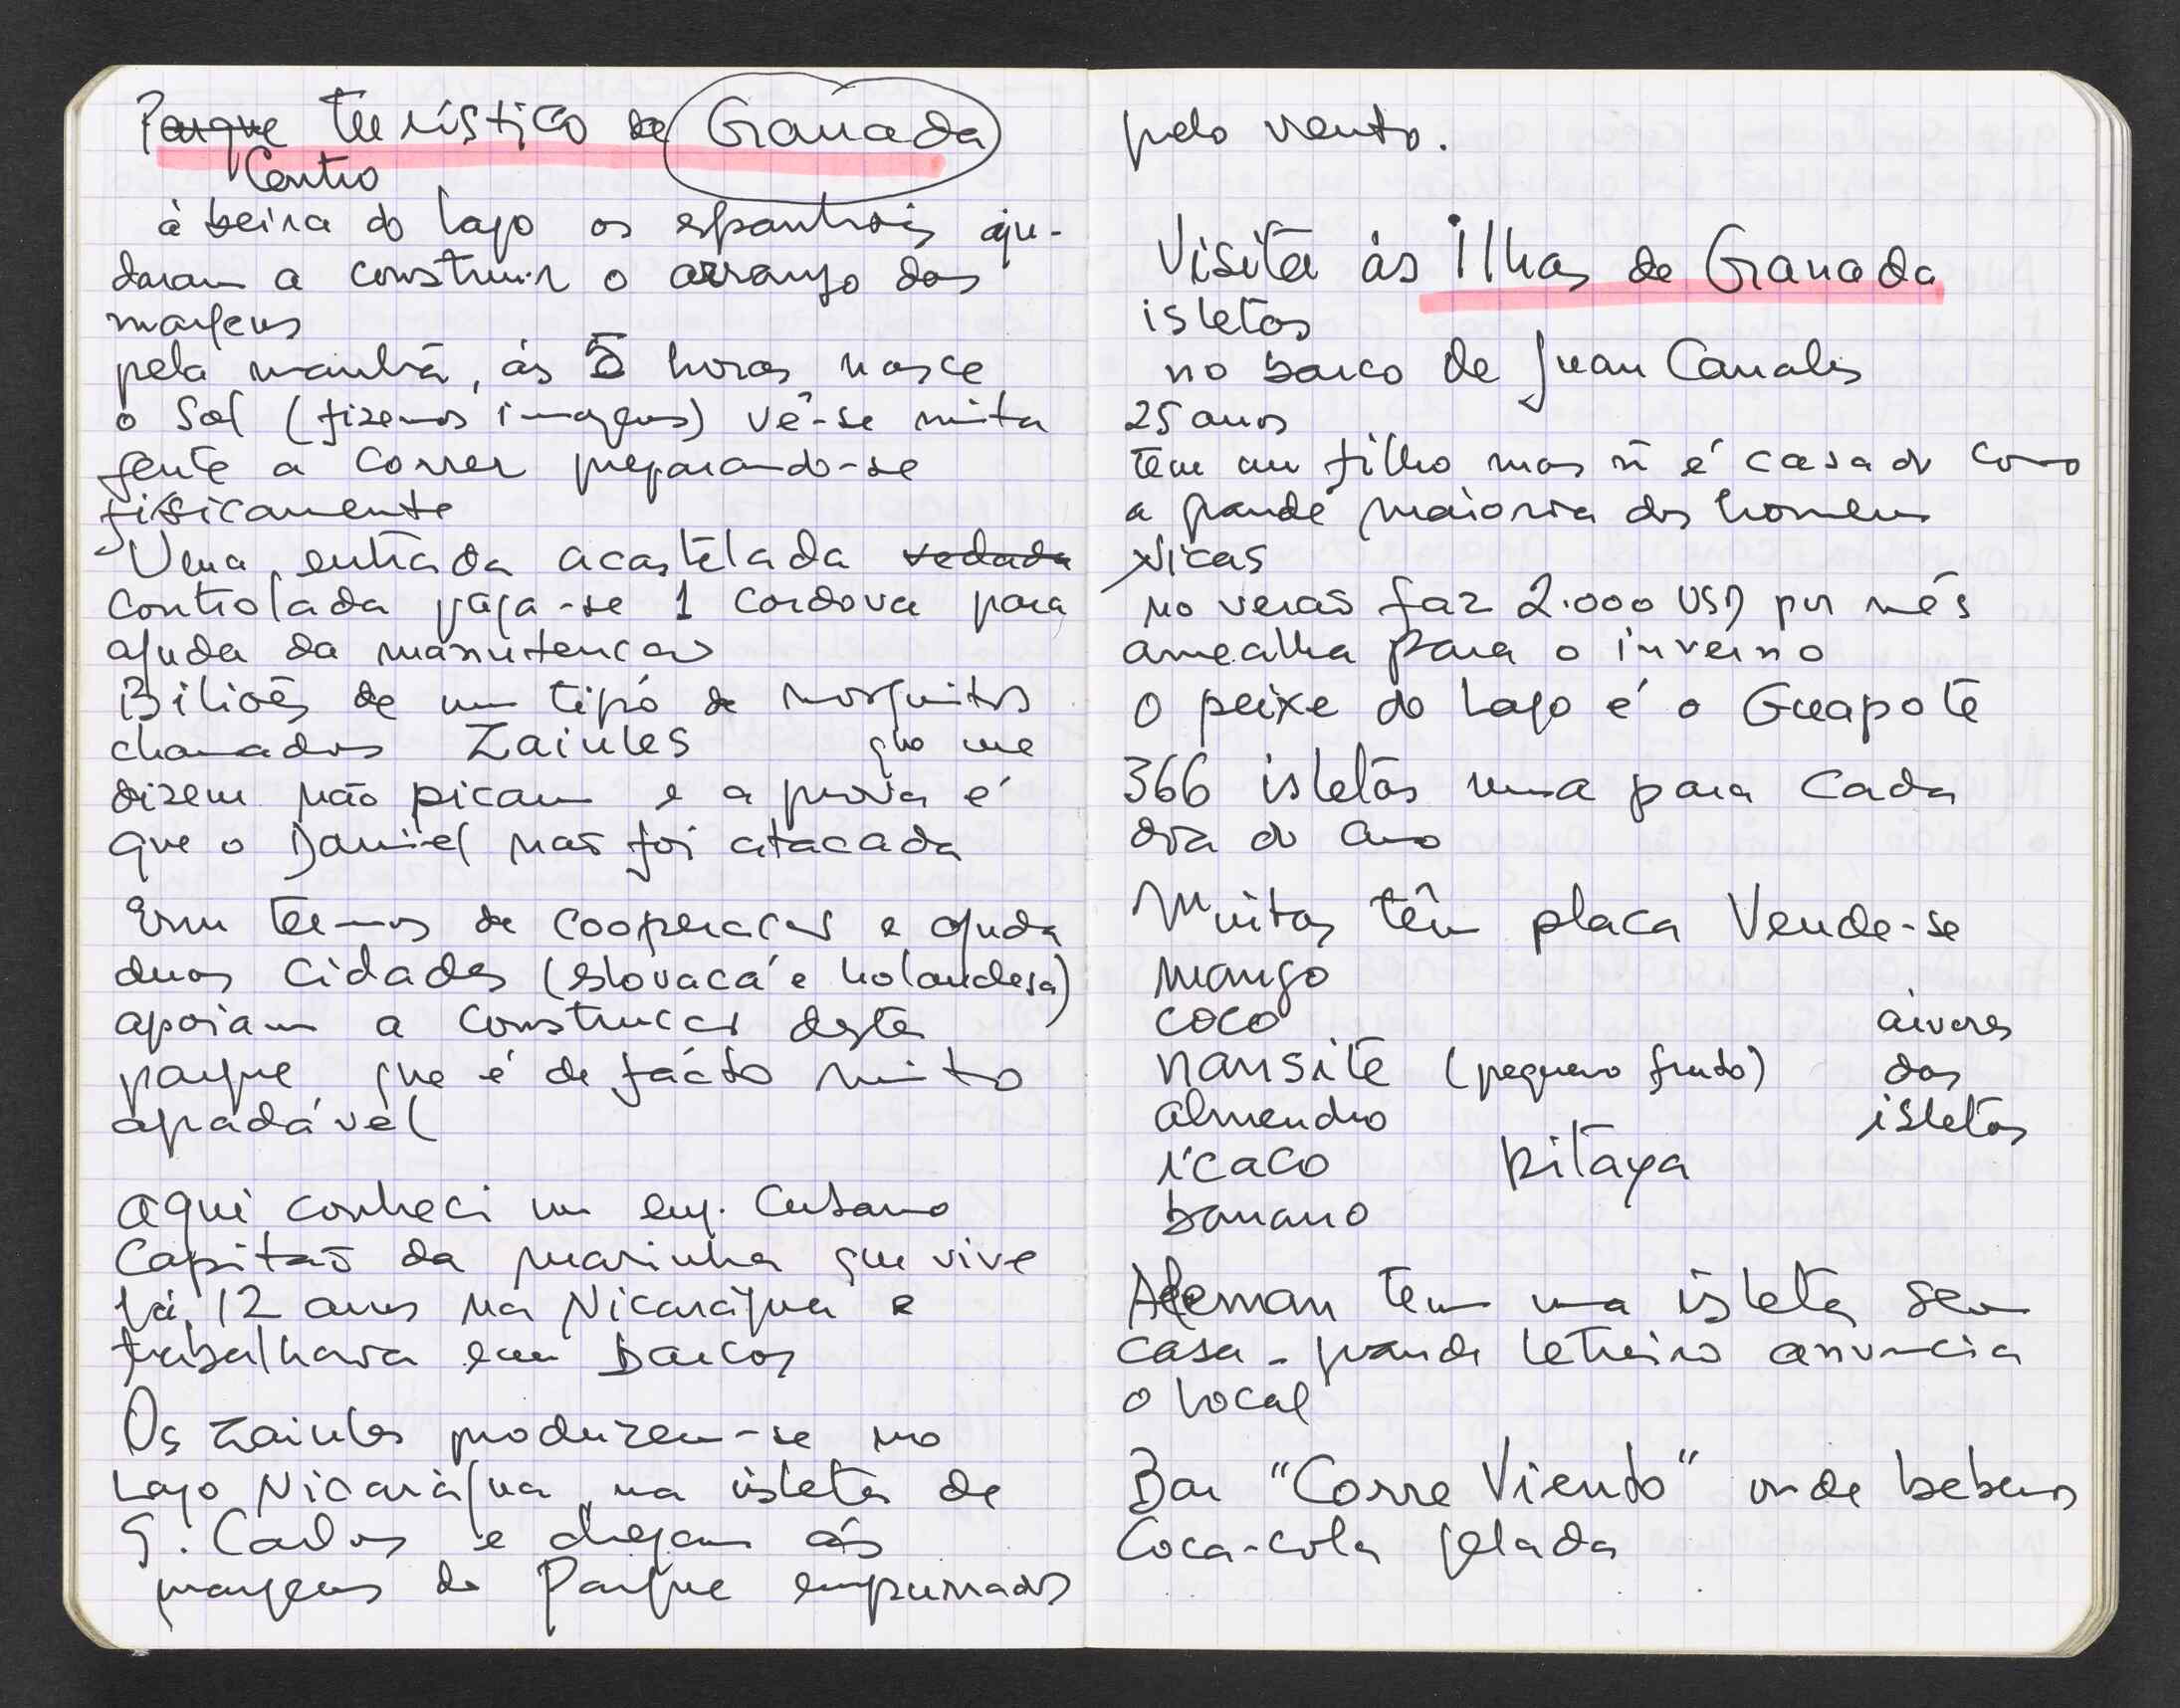 Parque turístico de Granada
Centro
à beira do lago os espanhois aju-
daram a construir o arranjo das
margens
pela manhã, ás 5 horas nasce
o Sol (fizemos imagens) vê-se muita
gente a correr preparando-se
fisicamente
Uma entrada acastelada vedada
controlada paga-se 1 cordova para
ajuda da manutenção
Biliões de um tipo de mosquitos
chamados Zaiules que me
dizem não picam e a prova é
que o Daniel não foi atacada
Em termos de cooperação e ajuda
duas cidades (eslovaca e holandesa)
apoiam a construção deste
parque que é de facto muito
agradável
aqui conheci um eng. Cubano
Capitão da marinha que vive
há 12 anos na Nicarágua e
trabalhava em barcos
Os zaiules produzem-se no
Lago Nicarágua na isleta de
S. Carlos e chegam ás
margens do Parque empurrados
pelo vento.
Visita ás Ilhas de Granada
isletas
no barco de Juan Canales
25 anos
tem um filho mas ñ é casado como
a grande maioria dos homens
Nicas
no verão faz 2.000 USD por mês
amealha para o inverno
O peixe do lago é o Guapote
366 isletas uma para cada
dia do ano
Muitas têm placa Vende-se
mango
coco árvores
nansite (pequeno fruto) das
almendro isletas
icaco pitaya
banano
Aleman tem uma isleta sem
casa - grande letreiro anuncia
o local
Bar "Corre Viento" onde bebemos
Coca-cola gelada